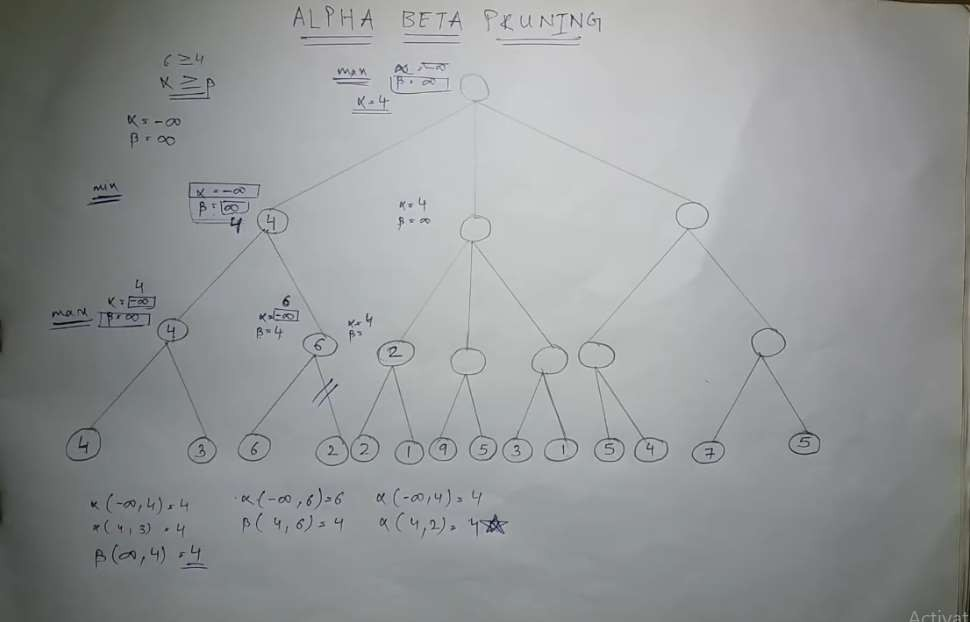 ALPHA BETA PRUNING
6 ≥ 4
α ≥ β
α = -∞
β = ∞
max
α = -∞
β = ∞
α = 4
min
α = -∞
β = ∞
4
4
α = 4
β = ∞
max
4
α = -∞
β = ∞
4
6
α = -∞
β = 4
6
α = 4
β =
2
4 3 6 2 2 1 9 5 3 1 5 4 7 5
α(-∞, 4) = 4
α(4, 3) = 4
β(∞, 4) = 4
α(-∞, 6) = 6
β(4, 6) = 4
α(-∞, 4) = 4
α(4, 2) = 4
Activat